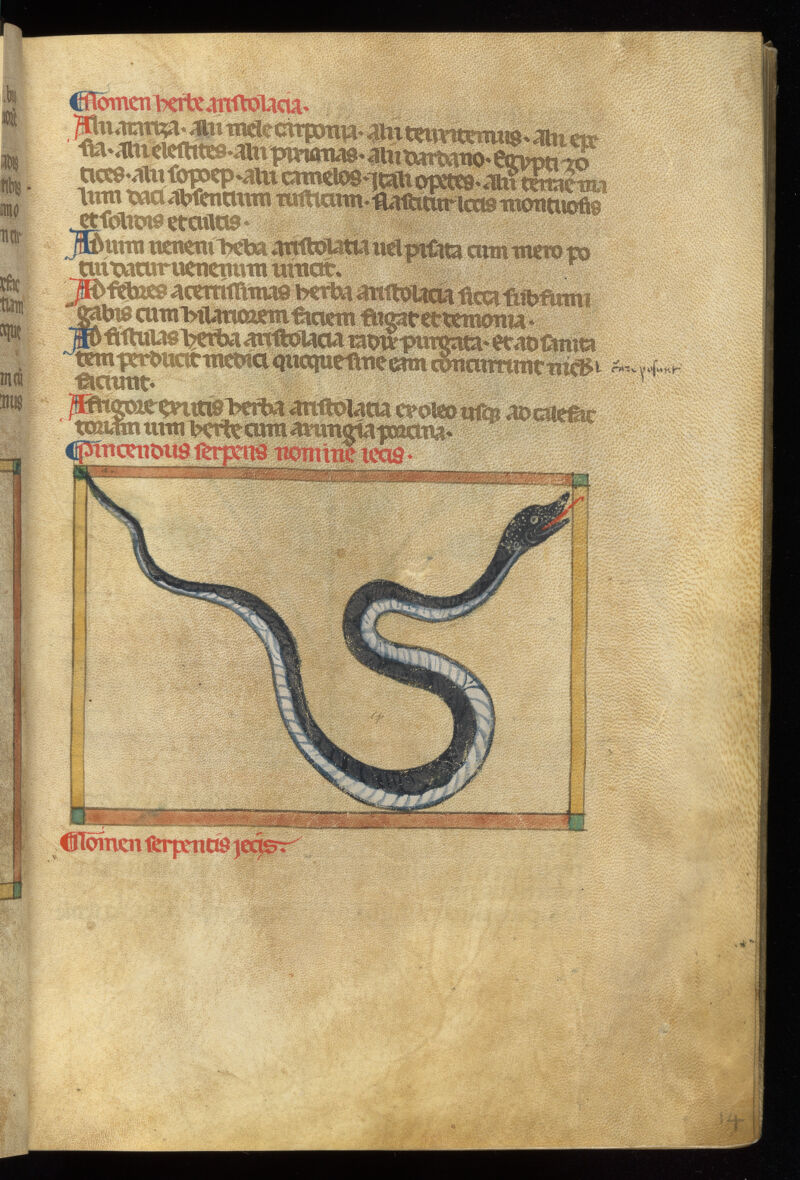 Nomen herbe aristolacia.
Alii arariza. alii mele carponia. alii teuxitemus. alii epe
sia. alii elestites. alii pixionas. alii dardano. Egypti zo
tices. alii sopoep. alii camelos. Itali opetes. alii terrae ma
lum daci absentium rusticum. Nascitur locis montuosis
et solidis et cultis.
Ad uim ueneni heba aristolatia uel pisata cum mero po
tui datur uenenum uincit.
Ad febres acerrissimas herba aristolacia sicca subfumi
gabis cum hilariorem faciem fugat et demonia.
Ad fistulas herba aristolacia radix purgata. et ad sanita
tem perducit medici quoque sine eam concurrunt nichil
faciunt.
A frigore exutis herba aristolatia ex oleo usque ad calefac
toriam uim herbe cum axungia porcina.
Pincendus serpens nomine iecis.
Nomen serpentis jecis.
14